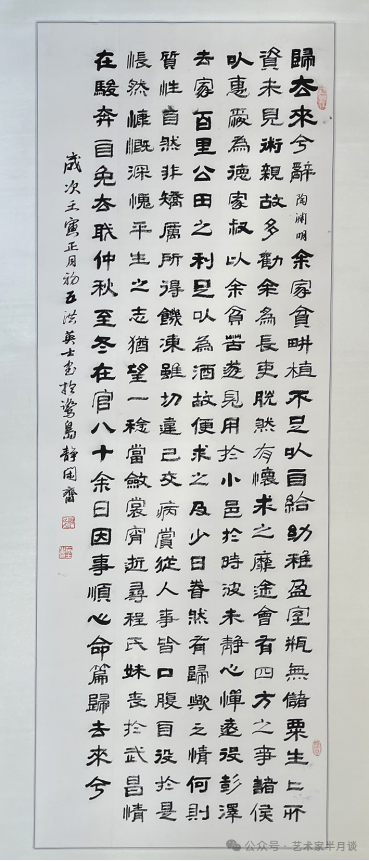 歸去來兮辭 陶淵明 余家貧畊植不足以自給幼稚盈室瓶無儲粟生〻所
資未見術親故多勸余為長吏脫然有懷求之靡途會有四方之事諸侯
以惠愛為德家叔以余貧苦遂見用於小邑於時波未靜心憚遠役彭澤
去家百里公田之利足以為酒故便求之及少日眷然有歸歟之情何則
質性自然非矯厲所得饑凍雖切違己交病賞從人事皆口腹自役於是
悵然慷慨深愧平生之志猶望一稔當斂裳宵逝尋程氏妹喪於武昌情
在駿奔自免去職仲秋至冬在官八十余日因事順心命篇歸去來兮
歲次壬寅正月初五洪英士書於鷺島靜閒齋
公众号·艺术家半月谈